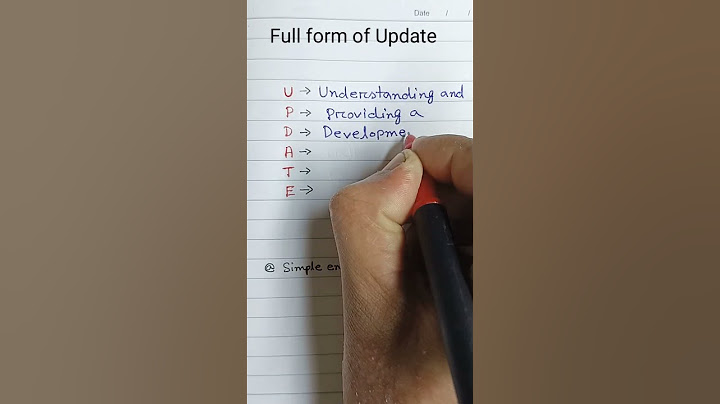 Date / /
Full form of Update
U → Understanding and
P → Providing a
D → Developme
A →
T →
E →
@ Simple en